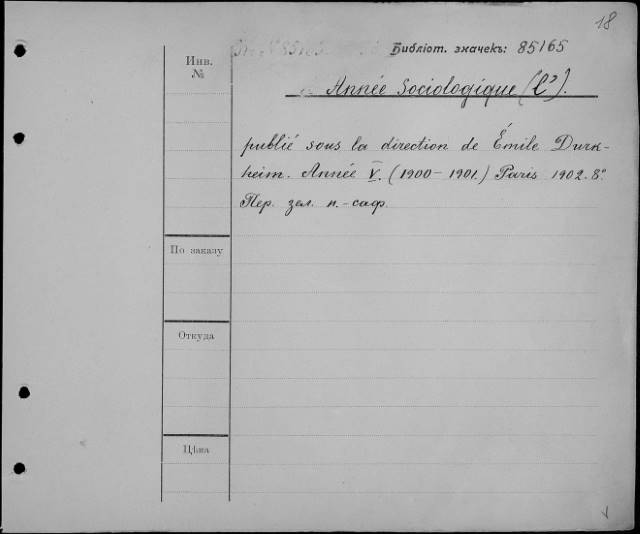 18
Библіот. значекъ: 85165
Инв.
№
Année Sociologique (L').
publié sous la direction de Émile Durk-
heim. Année V. (1900-1901.) Paris 1902. 8°.
Пер. зел. п.-саф.
По заказу
Откуда
Цѣна